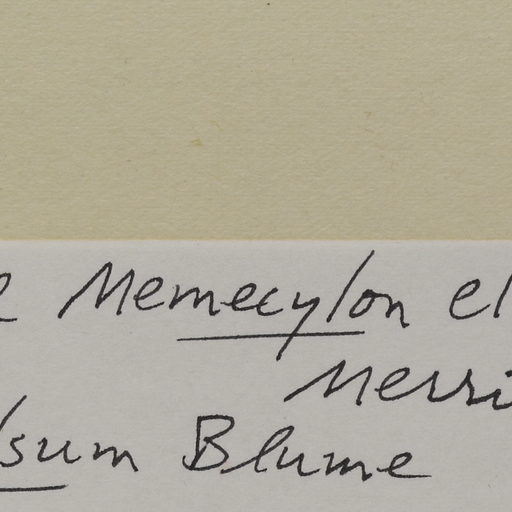 e Memecylon el
Merri
lsum Blume